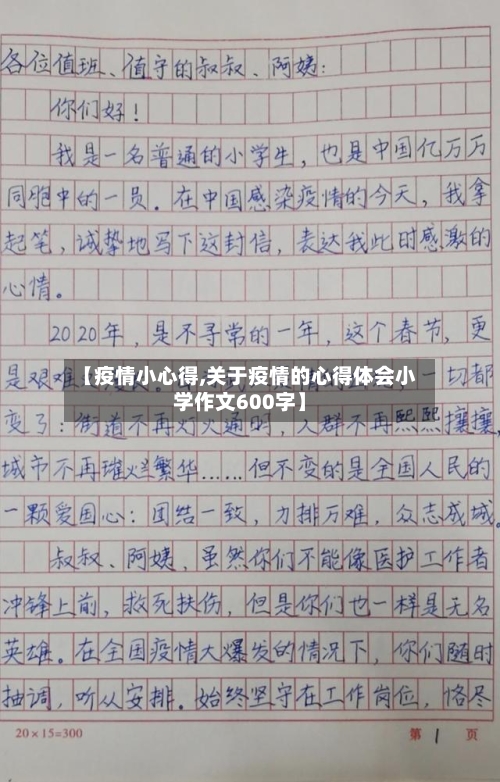 各位值班、值守的叔叔、阿姨：
你们好！
我是一名普通的小学生，也是中国亿万万
同胞中的一员。在中国感染疫情的今天，我拿
起笔，诚挚地写下这封信，表达我此时感激的
心情。
2020年，是不寻常的一年，这个春节，更
是艰难
一切都
【疫情小心得,关于疫情的心得体会小
学作文600字】
变了：街道不再灯火通明，人群不再熙熙攘攘，
城市不再璀烂繁华……但不变的是全国人民的
一颗爱国心：团结一致，力排万难，众志成城。
叔叔、阿姨，虽然你们不能像医护工作者
冲锋上前，救死扶伤，但是你们也一样是无名
英雄。在全国疫情大爆发的情况下，你们随时
抽调，听从安排。始终坚守在工作岗位，恪尽
20×15=300
第 1 页